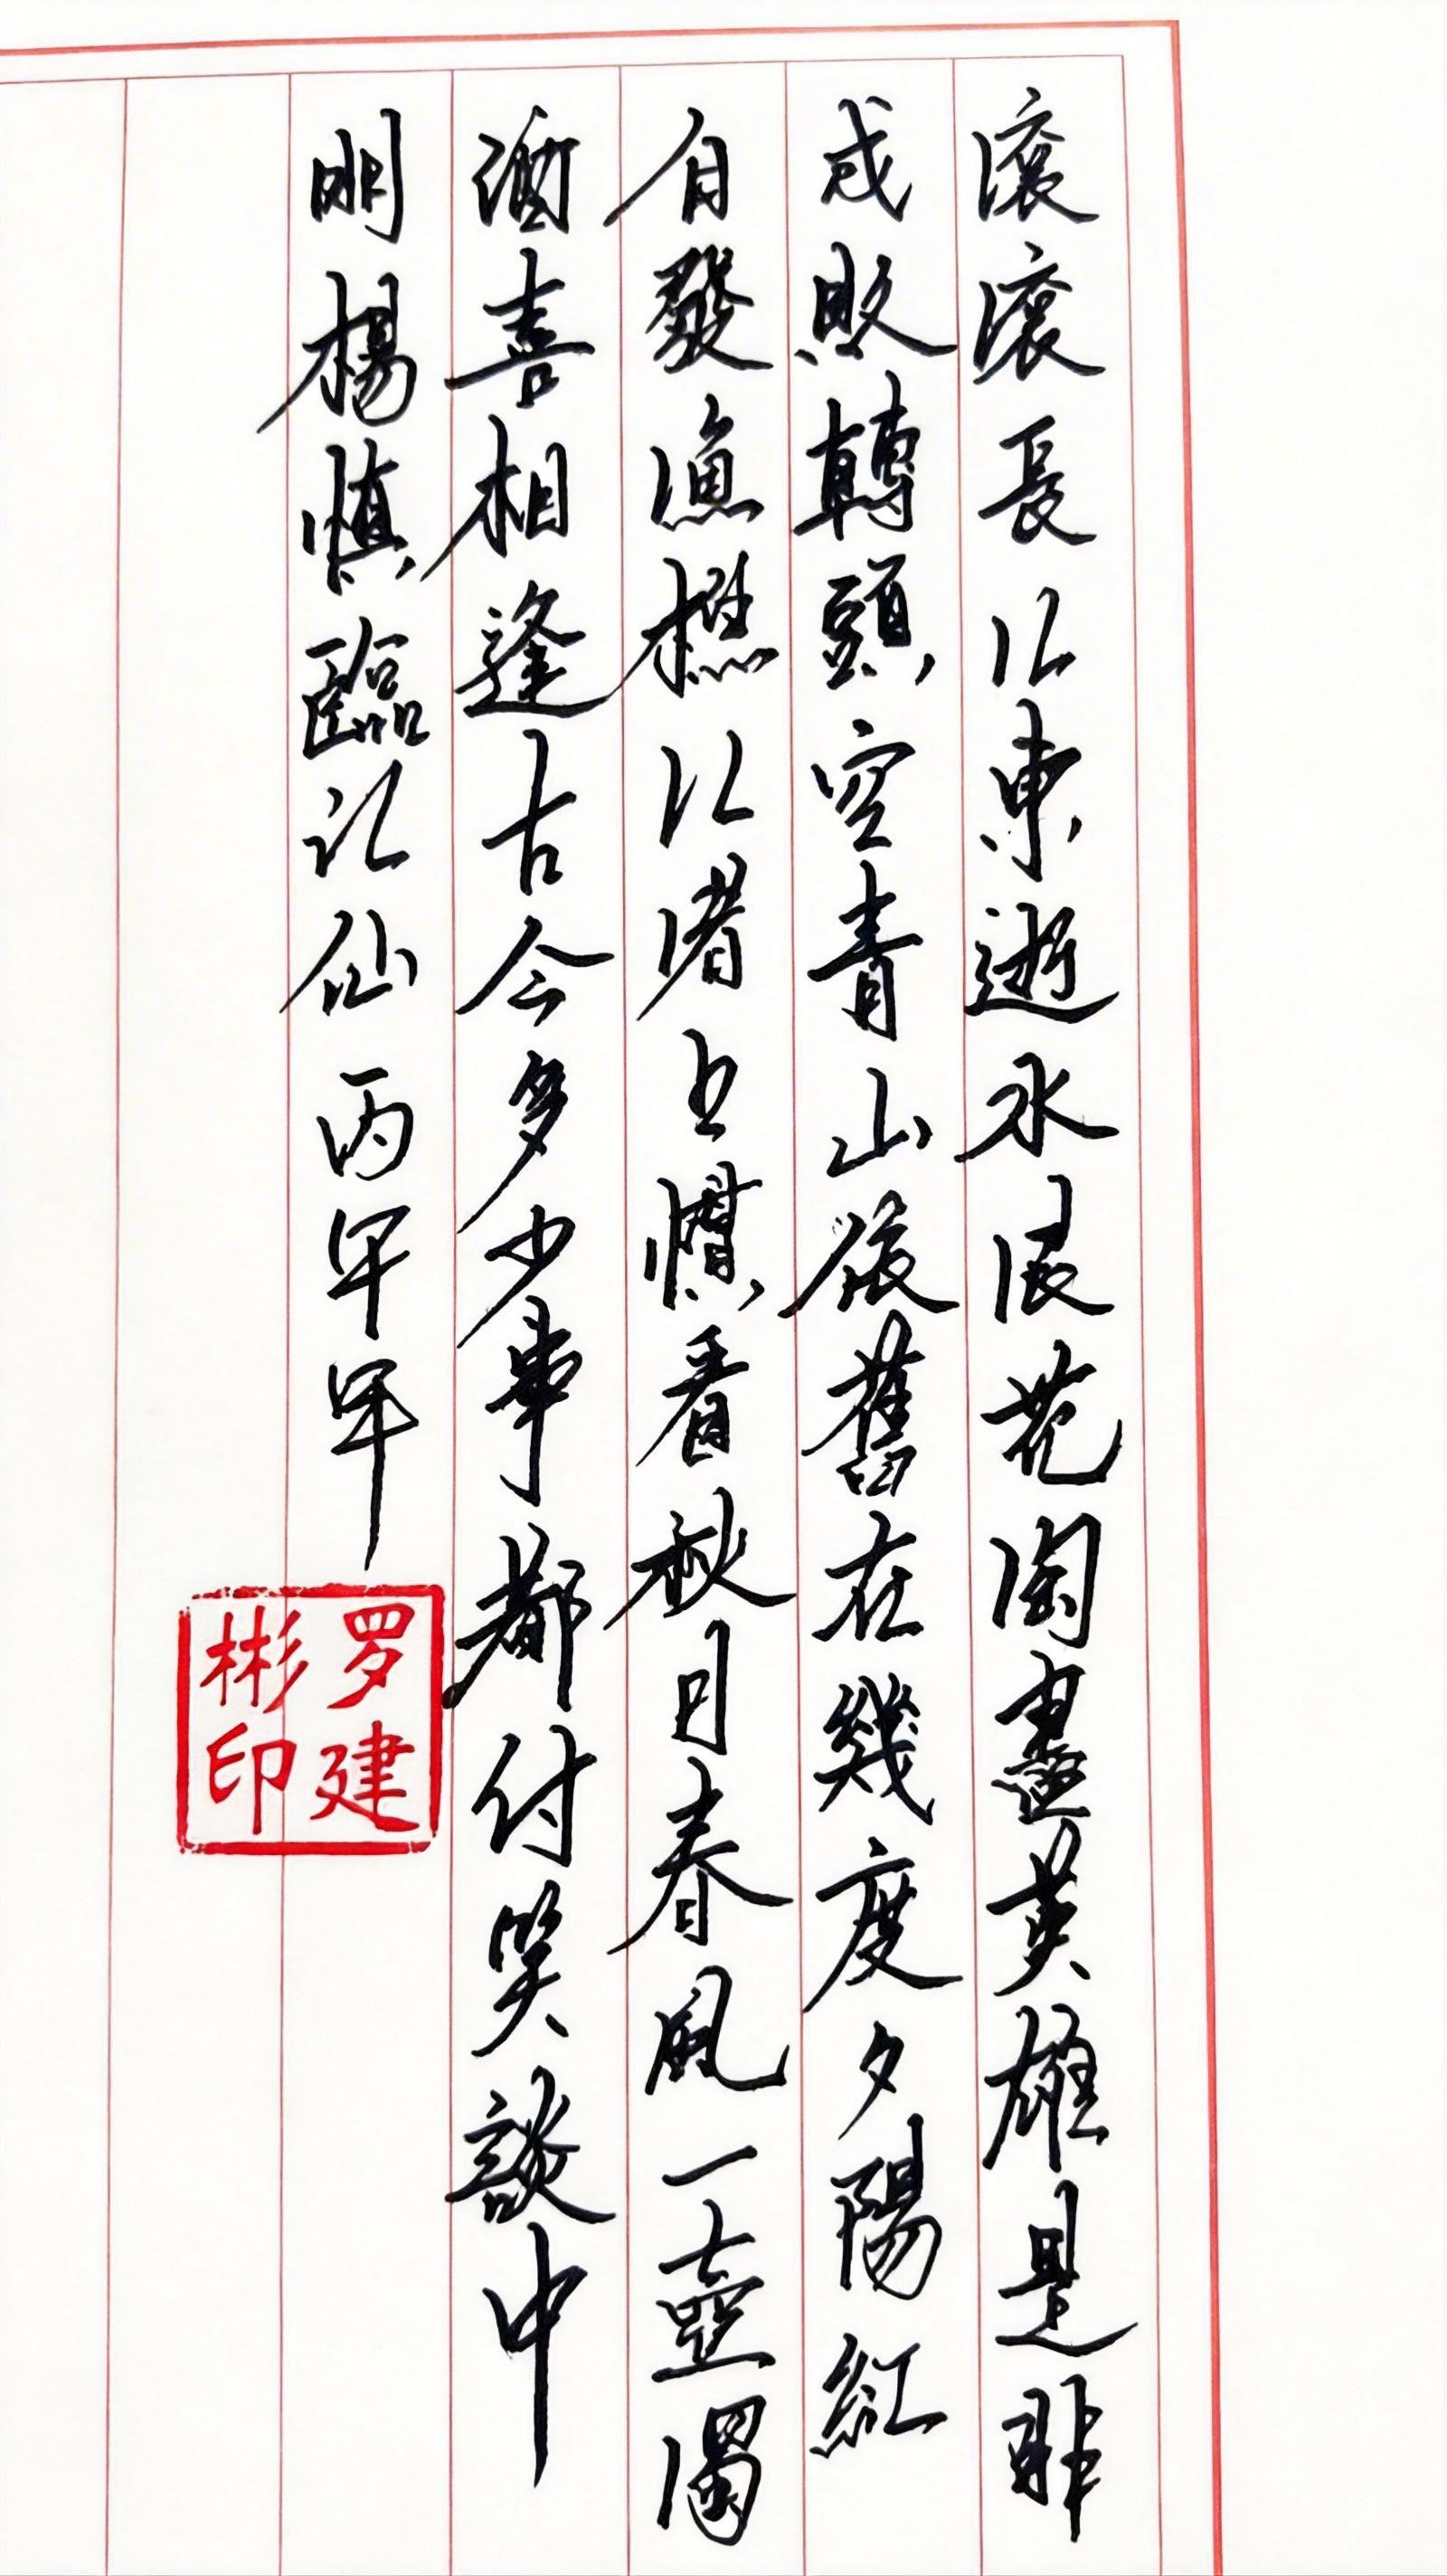 滾滾長江東逝水浪花淘盡英雄是非
成敗轉頭空青山依舊在幾度夕陽紅
白發漁樵江渚上慣看秋月春風一壺濁
酒喜相逢古今多少事都付笑談中
明楊慎臨江仙丙午年
罗建
彬印